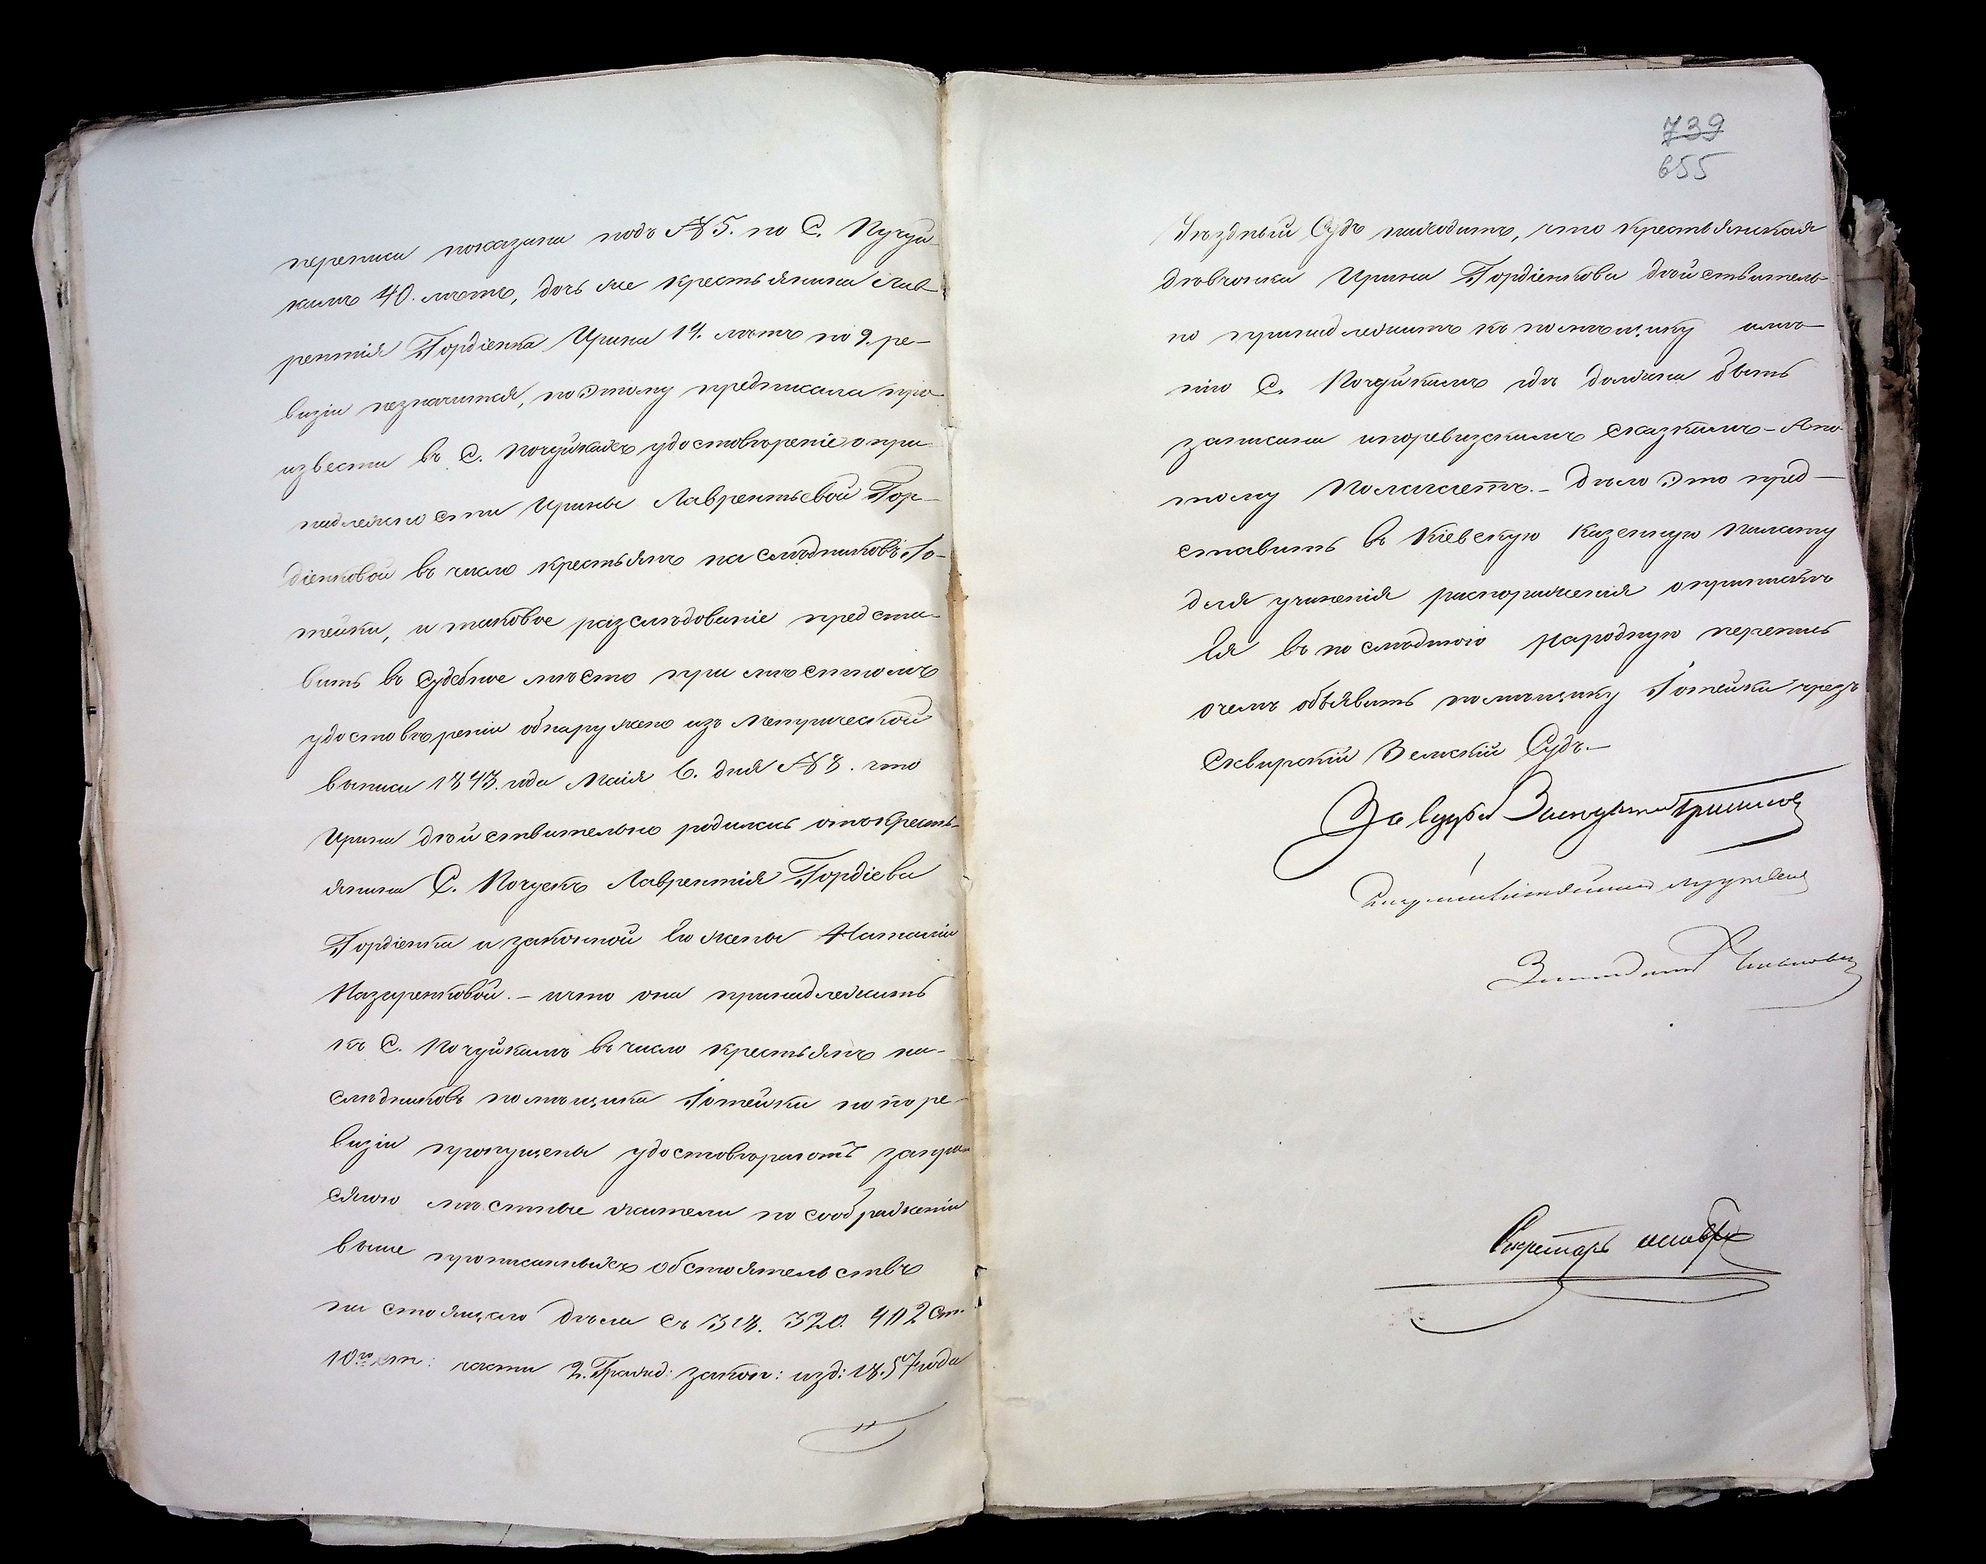 переписи показана подъ №5. по С. Пучуй-
камъ 40. лѣтъ, дочь же крестьянина Лав-
рентія Гордіенка Ирина 14. лѣтъ по 9. ре-
визіи незначится, поэтому предписала про-
извести въ С. Почуйкахъ удостовѣреніе о при-
надлежности Ирины Лаврентьевой Гор-
діенковой въ число крестьянъ наслѣдниковъ Іо-
тейки, и таковое разслѣдованіе предста-
вить въ судебное мѣсто при мѣстномъ
удостовѣреніи обнаружено изъ Метрической
выписи 1843. года Маія 6. дня №8. что
Ирина дѣйствительно родилась отъ кресть-
янина С. Почуекъ Лаврентія Гордіева
Гордіенка и законной его жены Наталіи
Назаренковой. – и что она принадлежитъ
къ С. Почуйкамъ въ число крестьянъ на-
слѣдниковъ помѣщика Іотейки но по ре-
визіи пропущена удостовѣряютъ запри-
сягою мѣстные жители по соображеніи
выше прописанныхъ обстоятельствъ
настоящаго дѣла съ 318. 320. 412 ст.
10го т: части 2. Гражд: закон: изд: 1857 года
739
655
Уѣздный Судъ находитъ, что крестьянская
дѣвчонка Ирина Гордіенкова дѣйствитель-
но принадлежитъ къ помѣщику имѣ-
нію С. Почуйкамъ гдѣ должна быть
записана и поревизскимъ сказкамъ – Апо
тому Полагаетъ. – Дѣло это пред-
ставить въ Кіевскую Казенную Палату
для учиненія распоряженія о припискѣ
ея въ послѣднюю Народную перепись
о чемъ объявить помѣщику Іотейки чрезъ
Сквирскій Земскій Судъ. –
За Судью
Секретарь